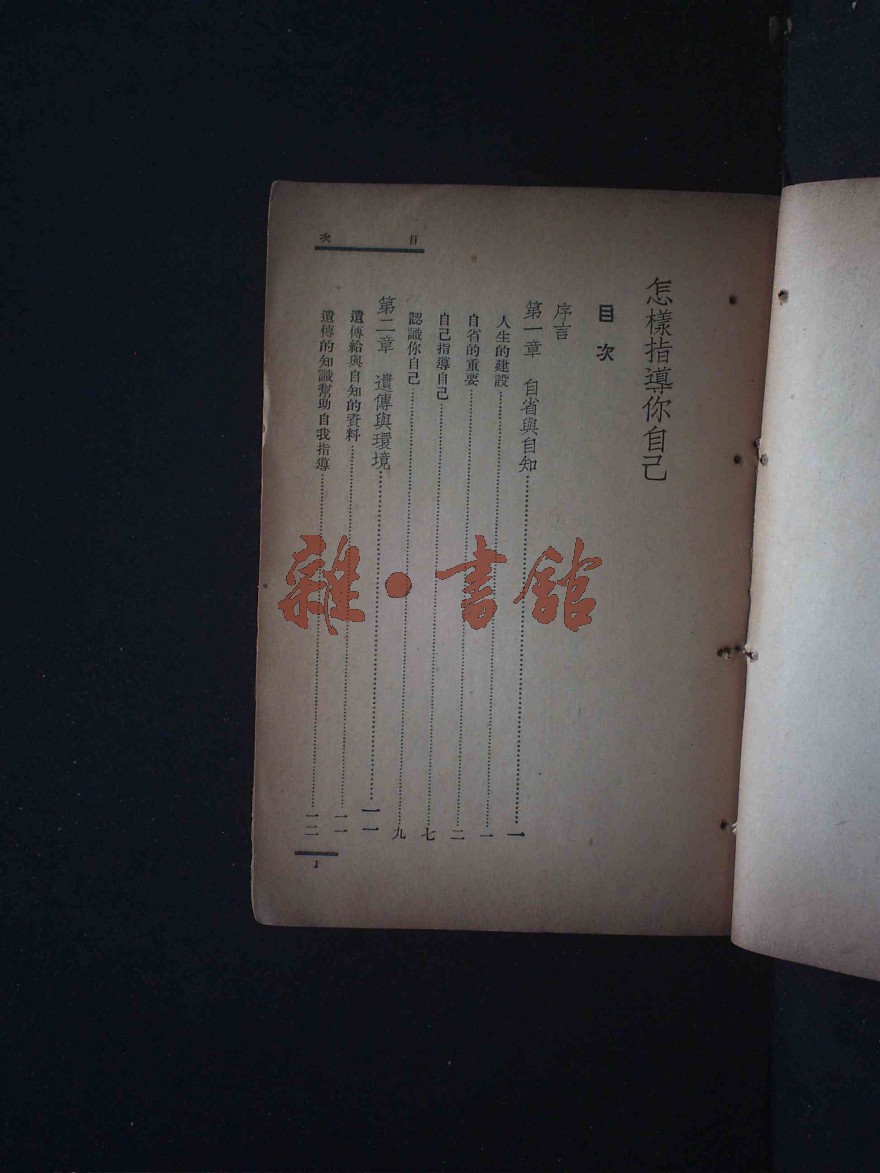 怎樣指導你自己
目次
序言
第一章 自省與自知……一
人生的建設……一
自省的重要……二
自己指導自己……七
認識你自己……九
第二章 遺傳與環境……一一
遺傳給與自知的資料……一一
遺傳的知識幫助自我指導……一二
目次
1
雜·書館